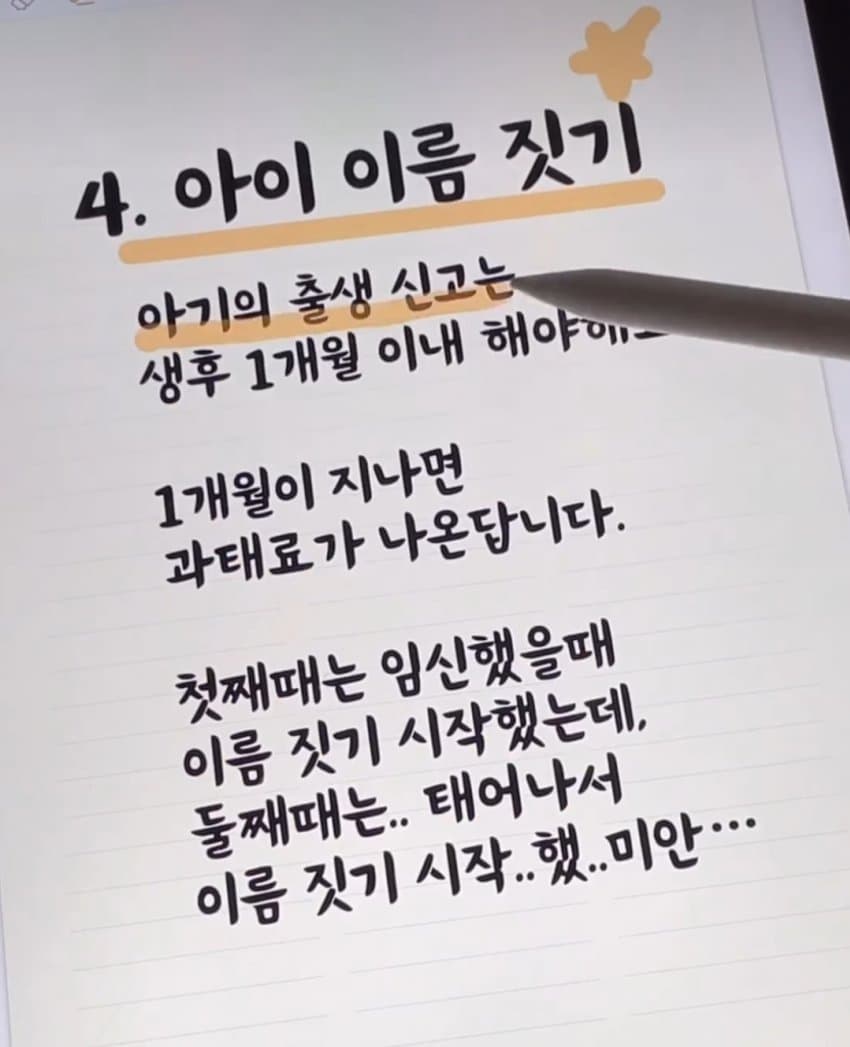 4. 아이 이름 짓기
아기의 출생 신고는
생후 1개월 이내
1개월이 지나면
과태료가 나온답니다.
첫째때는 임신했을때
이름 짓기 시작했는데,
둘째때는.. 태어나서
이름 짓기 시작..했..미안...